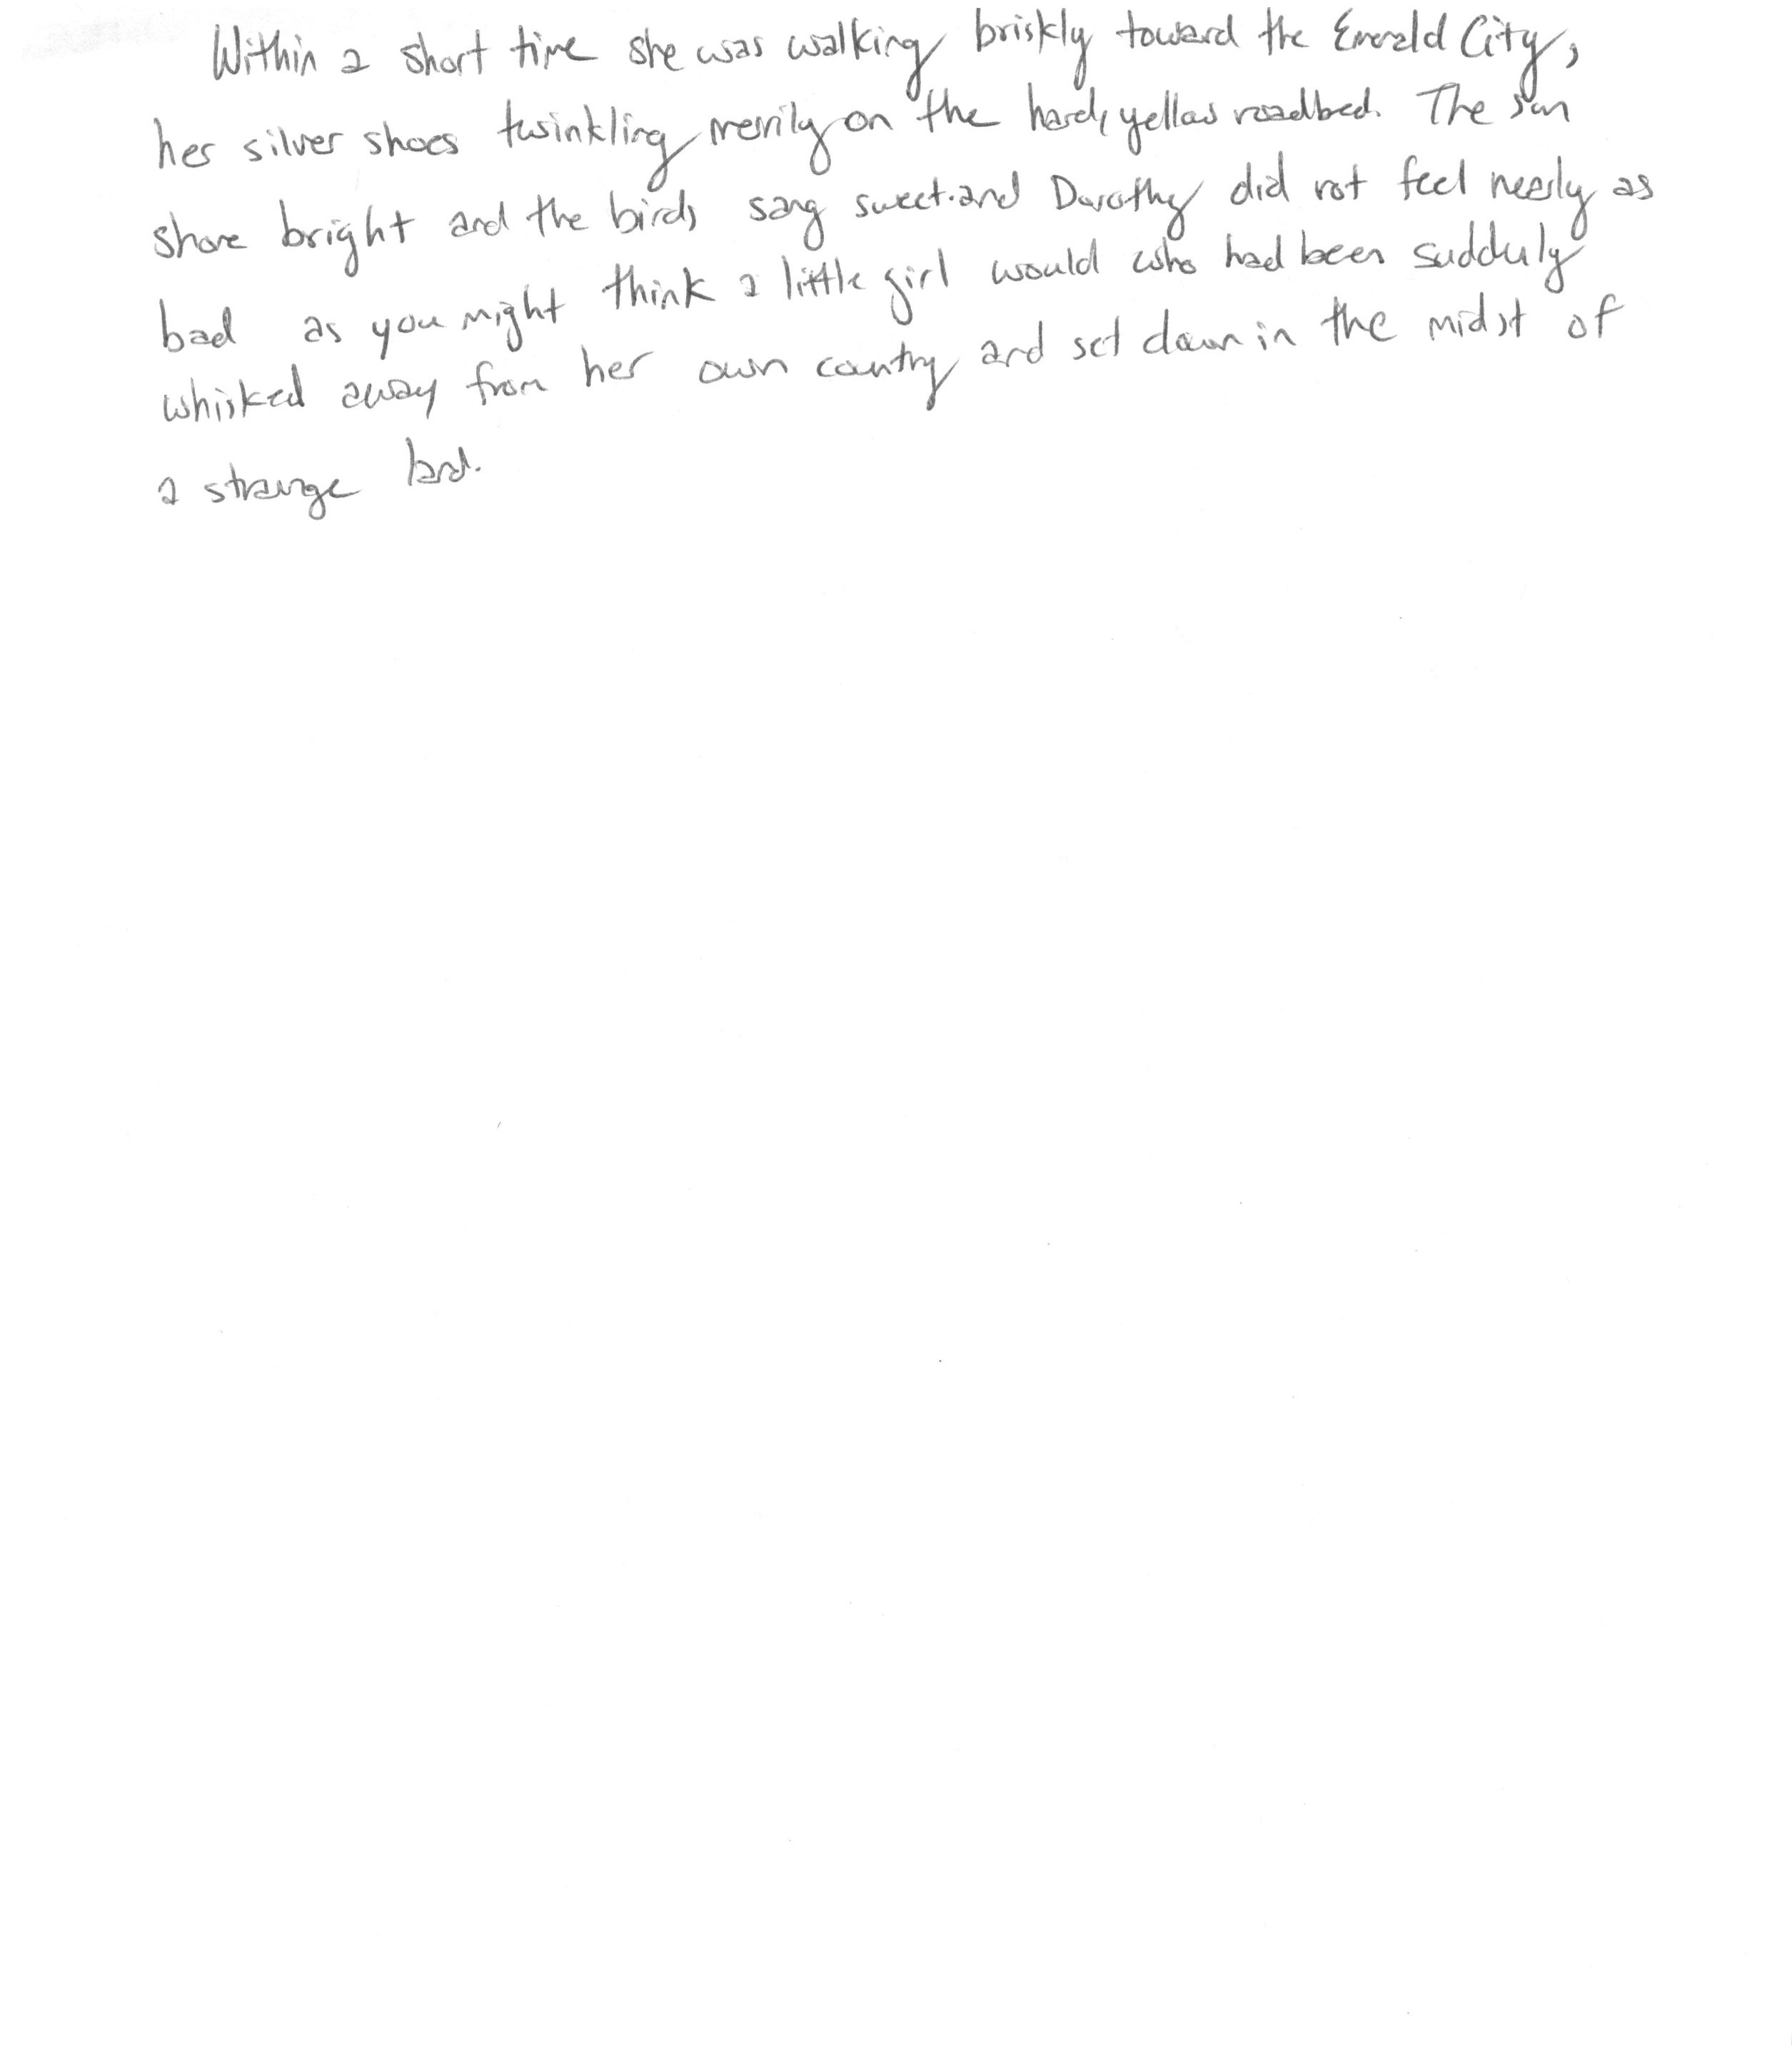 Within a short time she was walking briskly toward the Emerald City,
her silver shoes twinkling merrily on the hard, yellow roadbed. The sun
shone bright and the birds sang sweet and Dorothy did not feel nearly as
bad as you might think a little girl would who had been suddenly
whisked away from her own country and set down in the midst of
a strange land.